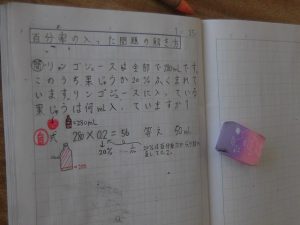 7 15
百分率の入った問題の解き方
問 リンゴジュースは全部で280mLです。
このうち果じゅうが20%ふくまれて
います。リンゴジュースに入っている
果じゅうは何mL入っていますか?
=280mL
式 280×0.2=56 答え 56mL
20%